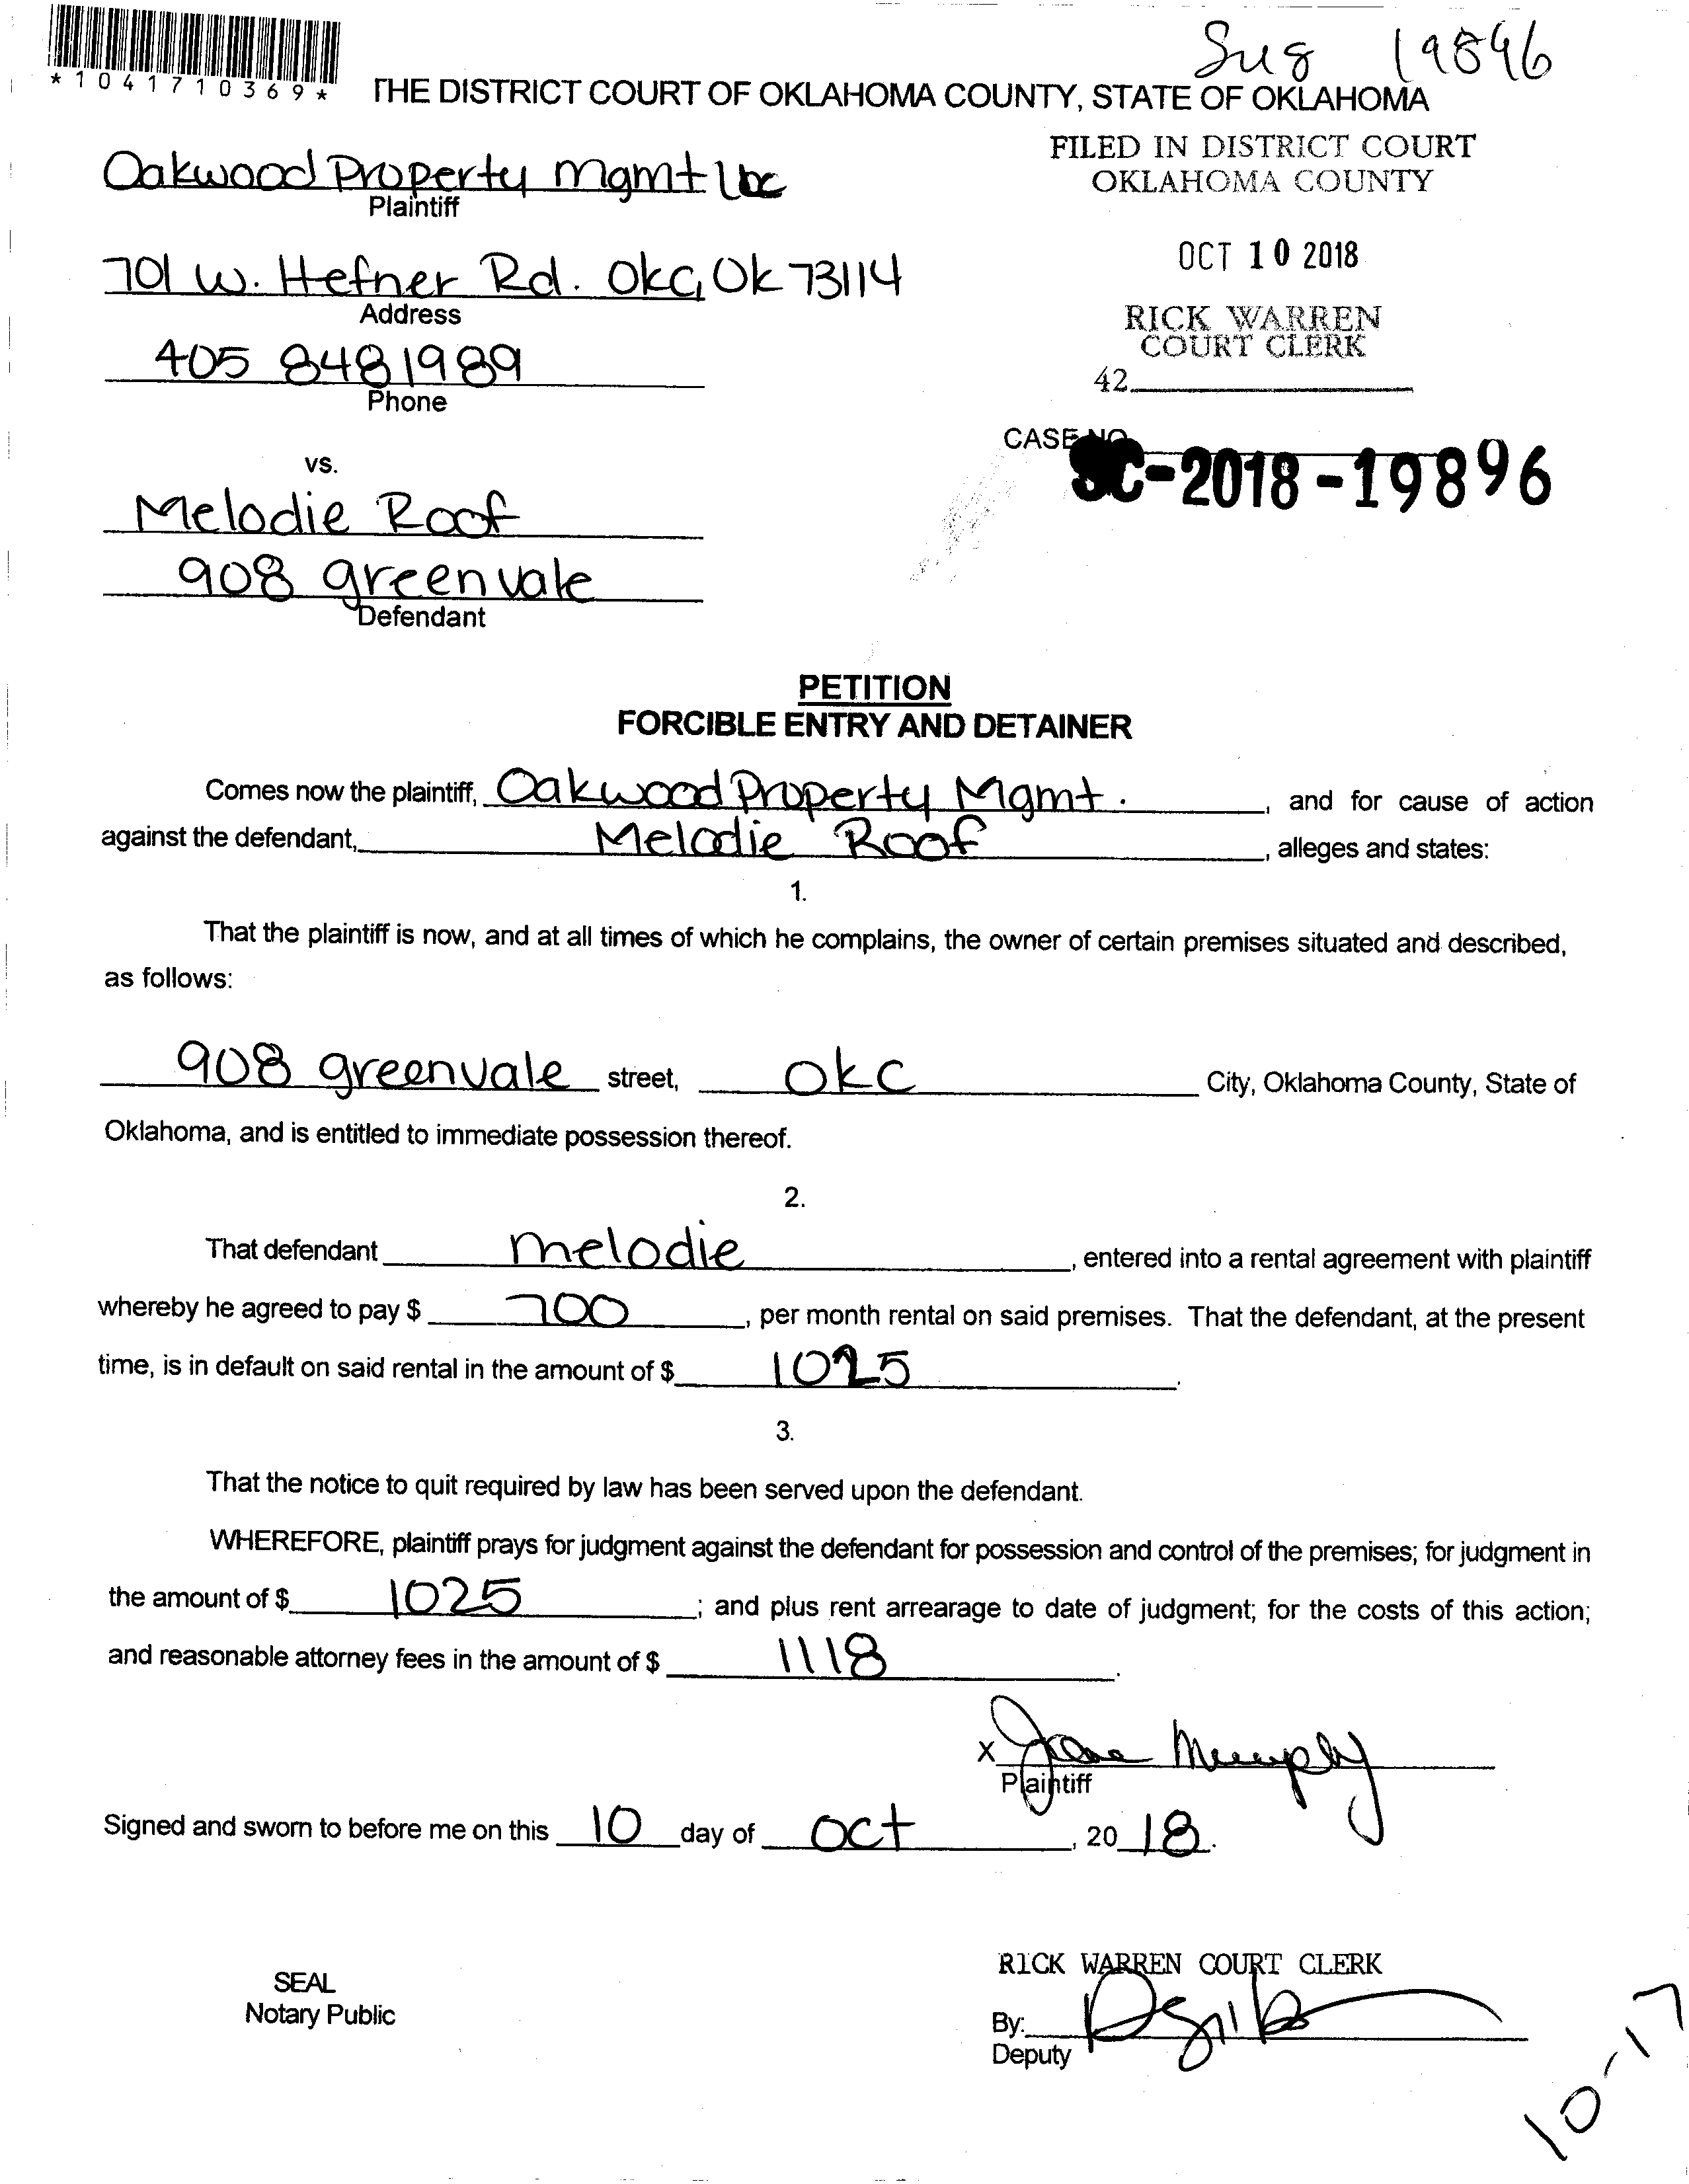 Sug 19896
*1041710369*
THE DISTRICT COURT OF OKLAHOMA COUNTY, STATE OF OKLAHOMA
FILED IN DISTRICT COURT
OKLAHOMA COUNTY
OCT 10 2018
RICK WARREN
COURT CLERK
42
CASE NO
SC-2018-19896
Oakwood Property Mgmt LLC
Plaintiff
701 W. Hefner Rd. OKC, OK 73114
Address
405 848 1989
Phone
vs.
Melodie Roof
908 greenvale
Defendant
PETITION
FORCIBLE ENTRY AND DETAINER
Comes now the plaintiff, Oakwood Property Mgmt. , and for cause of action
against the defendant, Melodie Roof , alleges and states:
1.
That the plaintiff is now, and at all times of which he complains, the owner of certain premises situated and described,
as follows:
908 greenvale street, OKC City, Oklahoma County, State of
Oklahoma, and is entitled to immediate possession thereof.
2.
That defendant melodie , entered into a rental agreement with plaintiff
whereby he agreed to pay $ 700 , per month rental on said premises. That the defendant, at the present
time, is in default on said rental in the amount of $ 1025 .
3.
That the notice to quit required by law has been served upon the defendant.
WHEREFORE, plaintiff prays for judgment against the defendant for possession and control of the premises; for judgment in
the amount of $ 1025 ; and plus rent arrearage to date of judgment; for the costs of this action;
and reasonable attorney fees in the amount of $ 1118 .
x Jana Murphy
Plaintiff
Signed and sworn to before me on this 10 day of oct , 20 18.
SEAL
Notary Public
RICK WARREN COURT CLERK
By:
Deputy
10-17